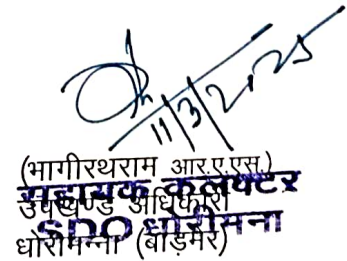 11/3/2025
(भागीरथराम आर.ए.एस.)
सहायक कलक्टर
उपखण्ड अधिकारी
SDO धोरीमना
धोरीमन्ना (बाड़मेर)